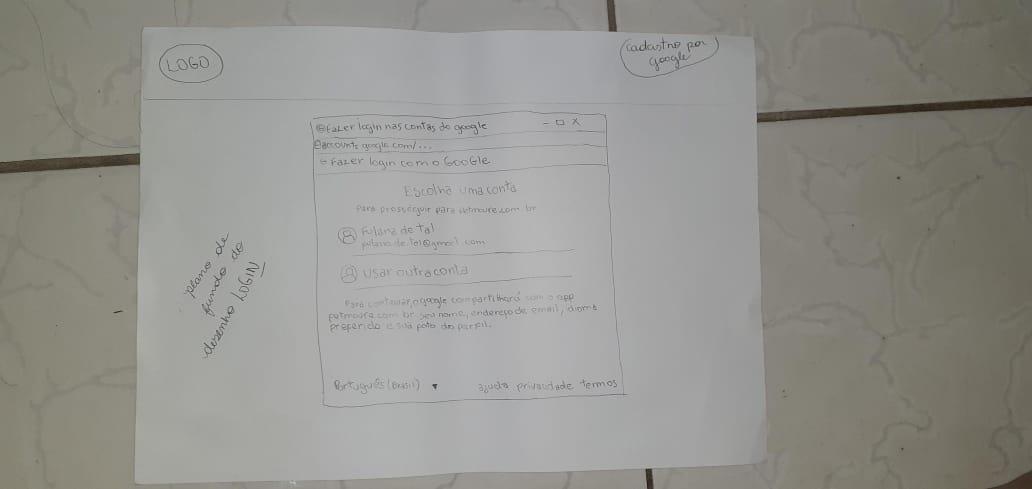 LOGO
Cadastro por
google
Fazer login nas contas do google
accounts google.com/...
Fazer login com o GooGle
Escolha uma conta
Para prosseguir para petmoure.com.br
Fulana de Tal
fulana.de.tal@gmail.com
usar outra conta
Para continuar, o google compartilhará com o app
petmoure.com.br seu nome, endereço de email, idioma
preferido e sua foto do perfil.
Português (Brasil)
ajuda privacidade termos
plano de
fundo do
desenho LOGIN